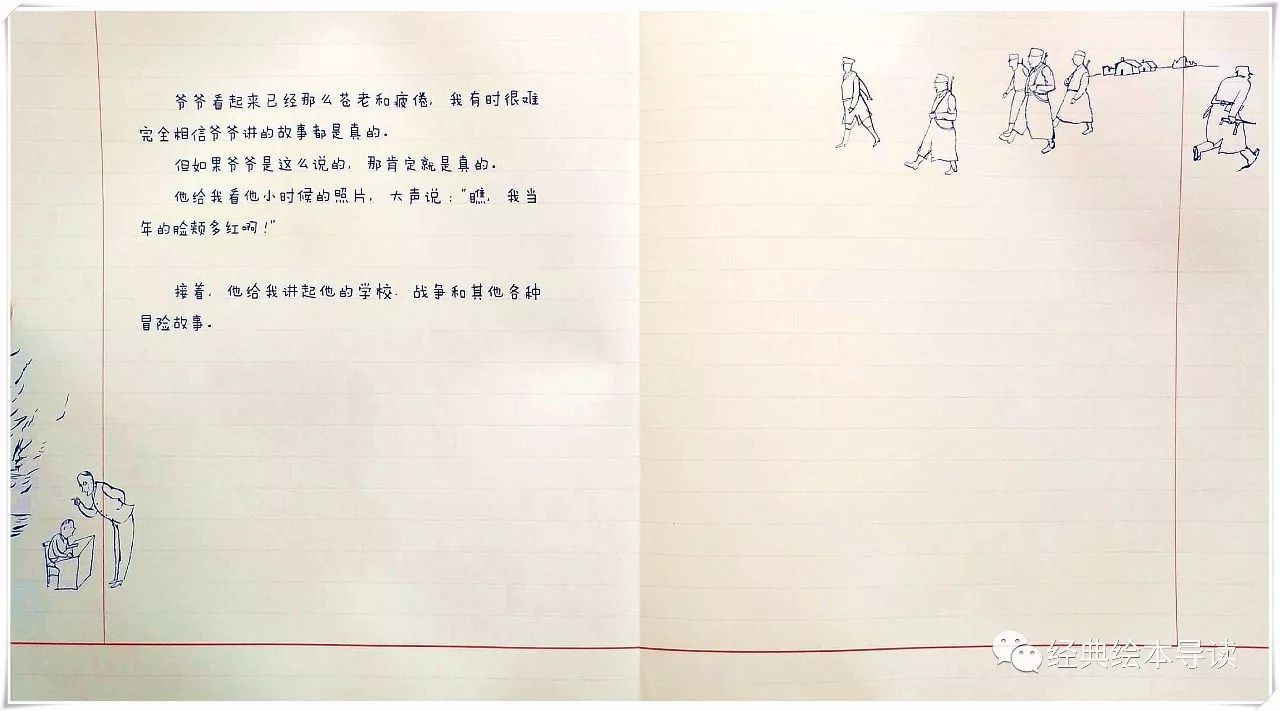 爷爷看起来已经那么苍老和疲倦，我有时很难
完全相信爷爷讲的故事都是真的。
但如果爷爷是这么说的，那肯定就是真的。
他给我看他小时候的照片，大声说：“瞧，我当
年的脸颊多红啊！”
接着，他给我讲起他的学校、战争和其他各种
冒险故事。
经典绘本导读